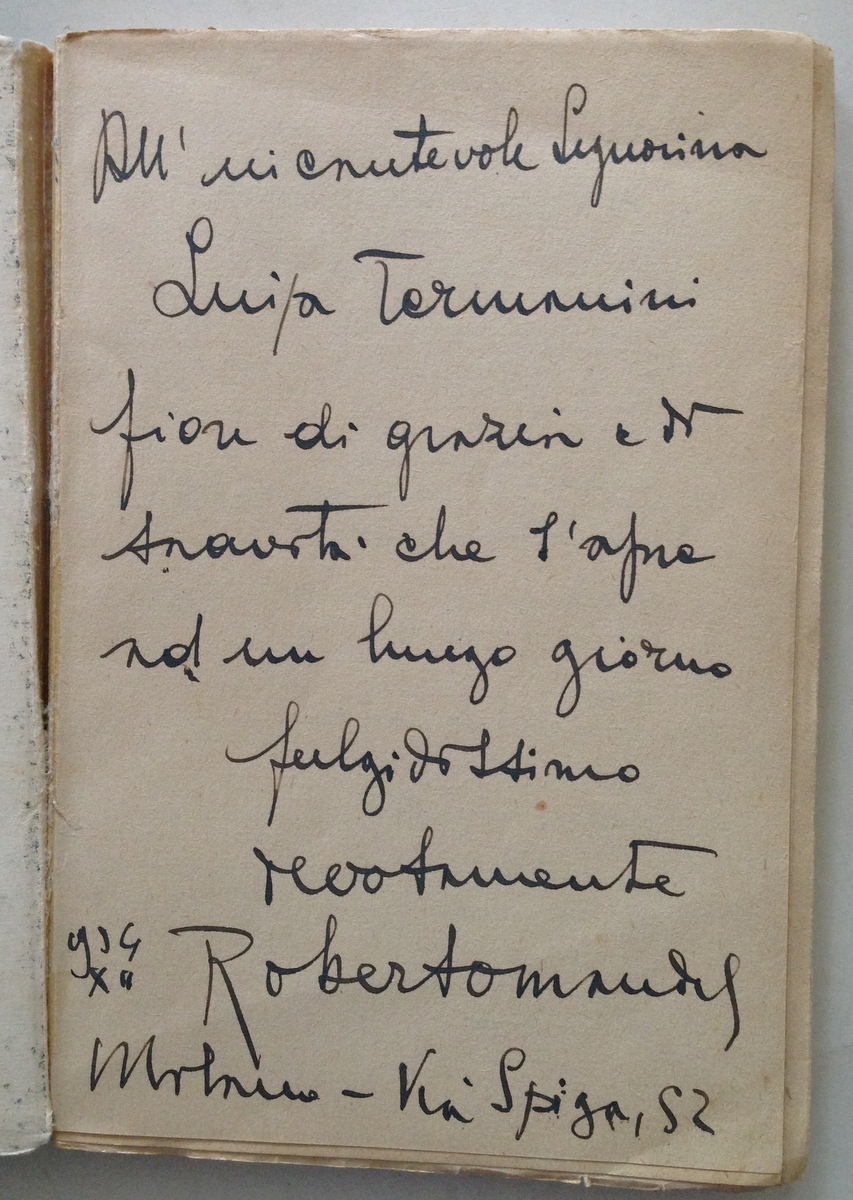 All' incantevole Signorina
Luisa Termanini
fiore di grazia e di
soavità che s'apre
ad un lungo giorno
fulgidissimo
devotamente
934 Robertomandel
XII
Milano - Via Spiga, 52